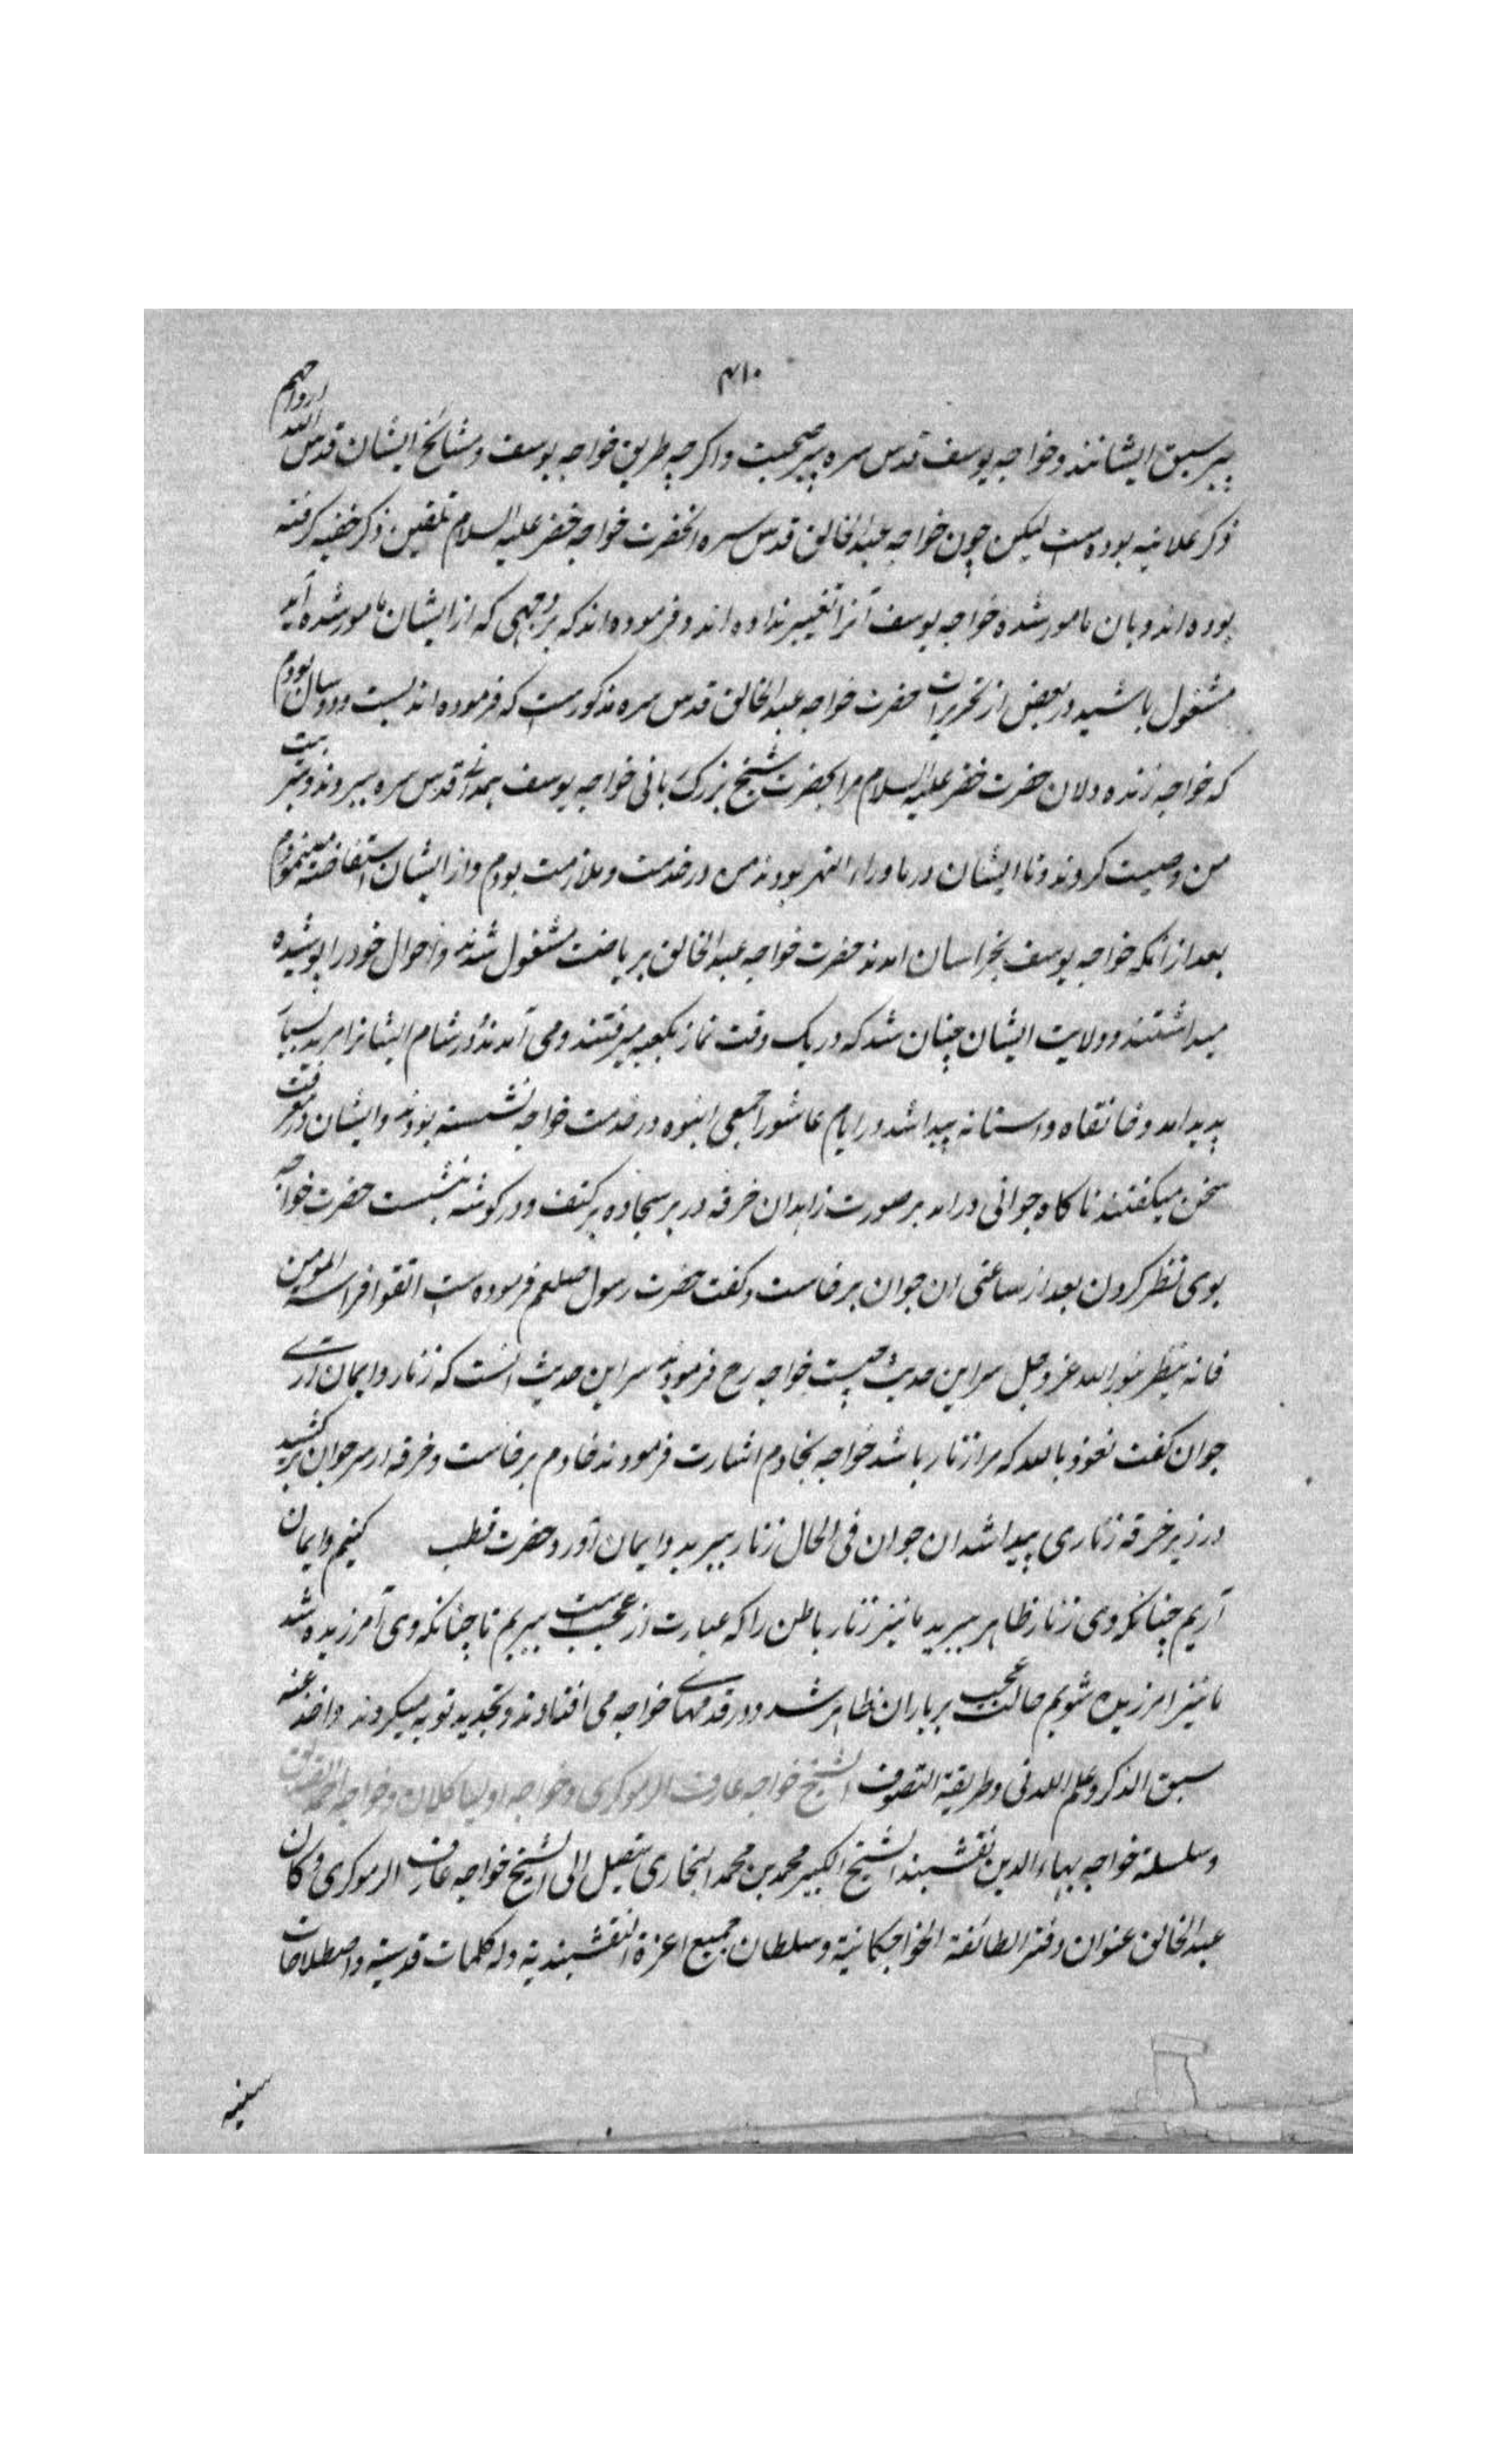 ۴۱۰
پیر سبق ایشانند و خواجه یوسف قدس سره پیر صحبت و اکرچه طریق خواجه یوسف و مشائخ ایشان قدس الله ارواحهم
ذکر علانیه بوده است لیکن چون خواجه عبدالخالق قدس سره از حضرت خواجه خضر علیه السلام تلقین ذکر خفیه کرفته
بوده اند و بان مامور شده خواجه یوسف آنرا تغییر نداده اند و فرموده اند که بر وجهی که از ایشان مامور شده اید
مشغول باشید در بعض از تحریرات حضرت خواجه عبدالخالق قدس سره مذکورست که فرموده اند بیست و دو سال بودم
که خواجه زنده دلان حضرت خضر علیه السلام مرا بحضرت شیخ بزرک یانی خواجه یوسف همدانی قدس سره سپردند و بتربیت
من وصیت کردند و تا ایشان در ماوراء النهر بودند من در خدمت و ملازمت بودم و از ایشان استفاضه مینمودم
بعد از انکه خواجه یوسف بخراسان امدند حضرت خواجه عبدالخالق بریاضت مشغول شدند و احوال خود را پوشیده
میداشتند و ولایت ایشان چنان شد که در یک وقت نماز بکعبه میرفتند و می آمدند و در شام ایشانرا مرید بسیار
پدید امد و خانقاه و استانه پیدا شد در ایام عاشورا جمعی انبوه در خدمت خواجه نشسته بودند و ایشان در معرفت
سخن میکفتند ناکاه جوانی در امد بر صورت زاهدان خرقه در بر سجاده بر کتف و در کوشه بنشست حضرت خواجه
بوی نظر کردن بعد از ساعتی ان جوان برخاست و کفت حضرت رسول صلعم فرموده است اتقوا فراسه المؤمن
فانه ینظر بنور الله عز و جل سر این حدیث چیست خواجه رح فرمودند سر این حدیث انست که زنار و ایمان اری
جوان کفت نعوذ بالله که مرا زنار باشد خواجه بخادم اشارت فرمودند خادم برخاست و خرقه از سر جوان برکشید
در زیر خرقه زناری پیدا شد ان جوان فی الحال زنار ببرید و ایمان آورد و حضرت قطب کنیم و ایمان
آریم چنانکه وی زنار ظاهر ببرید ما نیز زنار باطن را که عبارت از عجب است ببریم تا چنانکه وی آمرزیده شد
ما نیز امرزیده شویم حالت عجب بر یاران ظاهر شد و در قدمهای خواجه می افتادند و تجدید توبه میکردند و اخذ عنه
سبق الذکر و علم اللدنی و طریقة التصوف الشیخ خواجه عارف الریوکری و خواجه اولیا کلان و خواجه احمد
و سلسلة خواجه بهاء الدین نقشبند الشیخ الکبیر محمد بن محمد البخاری یتصل الی الشیخ خواجه عارف الریوکری و کان
عبدالخالق عنوان دفتر الطائفة الخواجکانیة و سلطان جمیع اعزة النقشبندیة وله کلمات قدسیة و اصطلاحات
سنیه